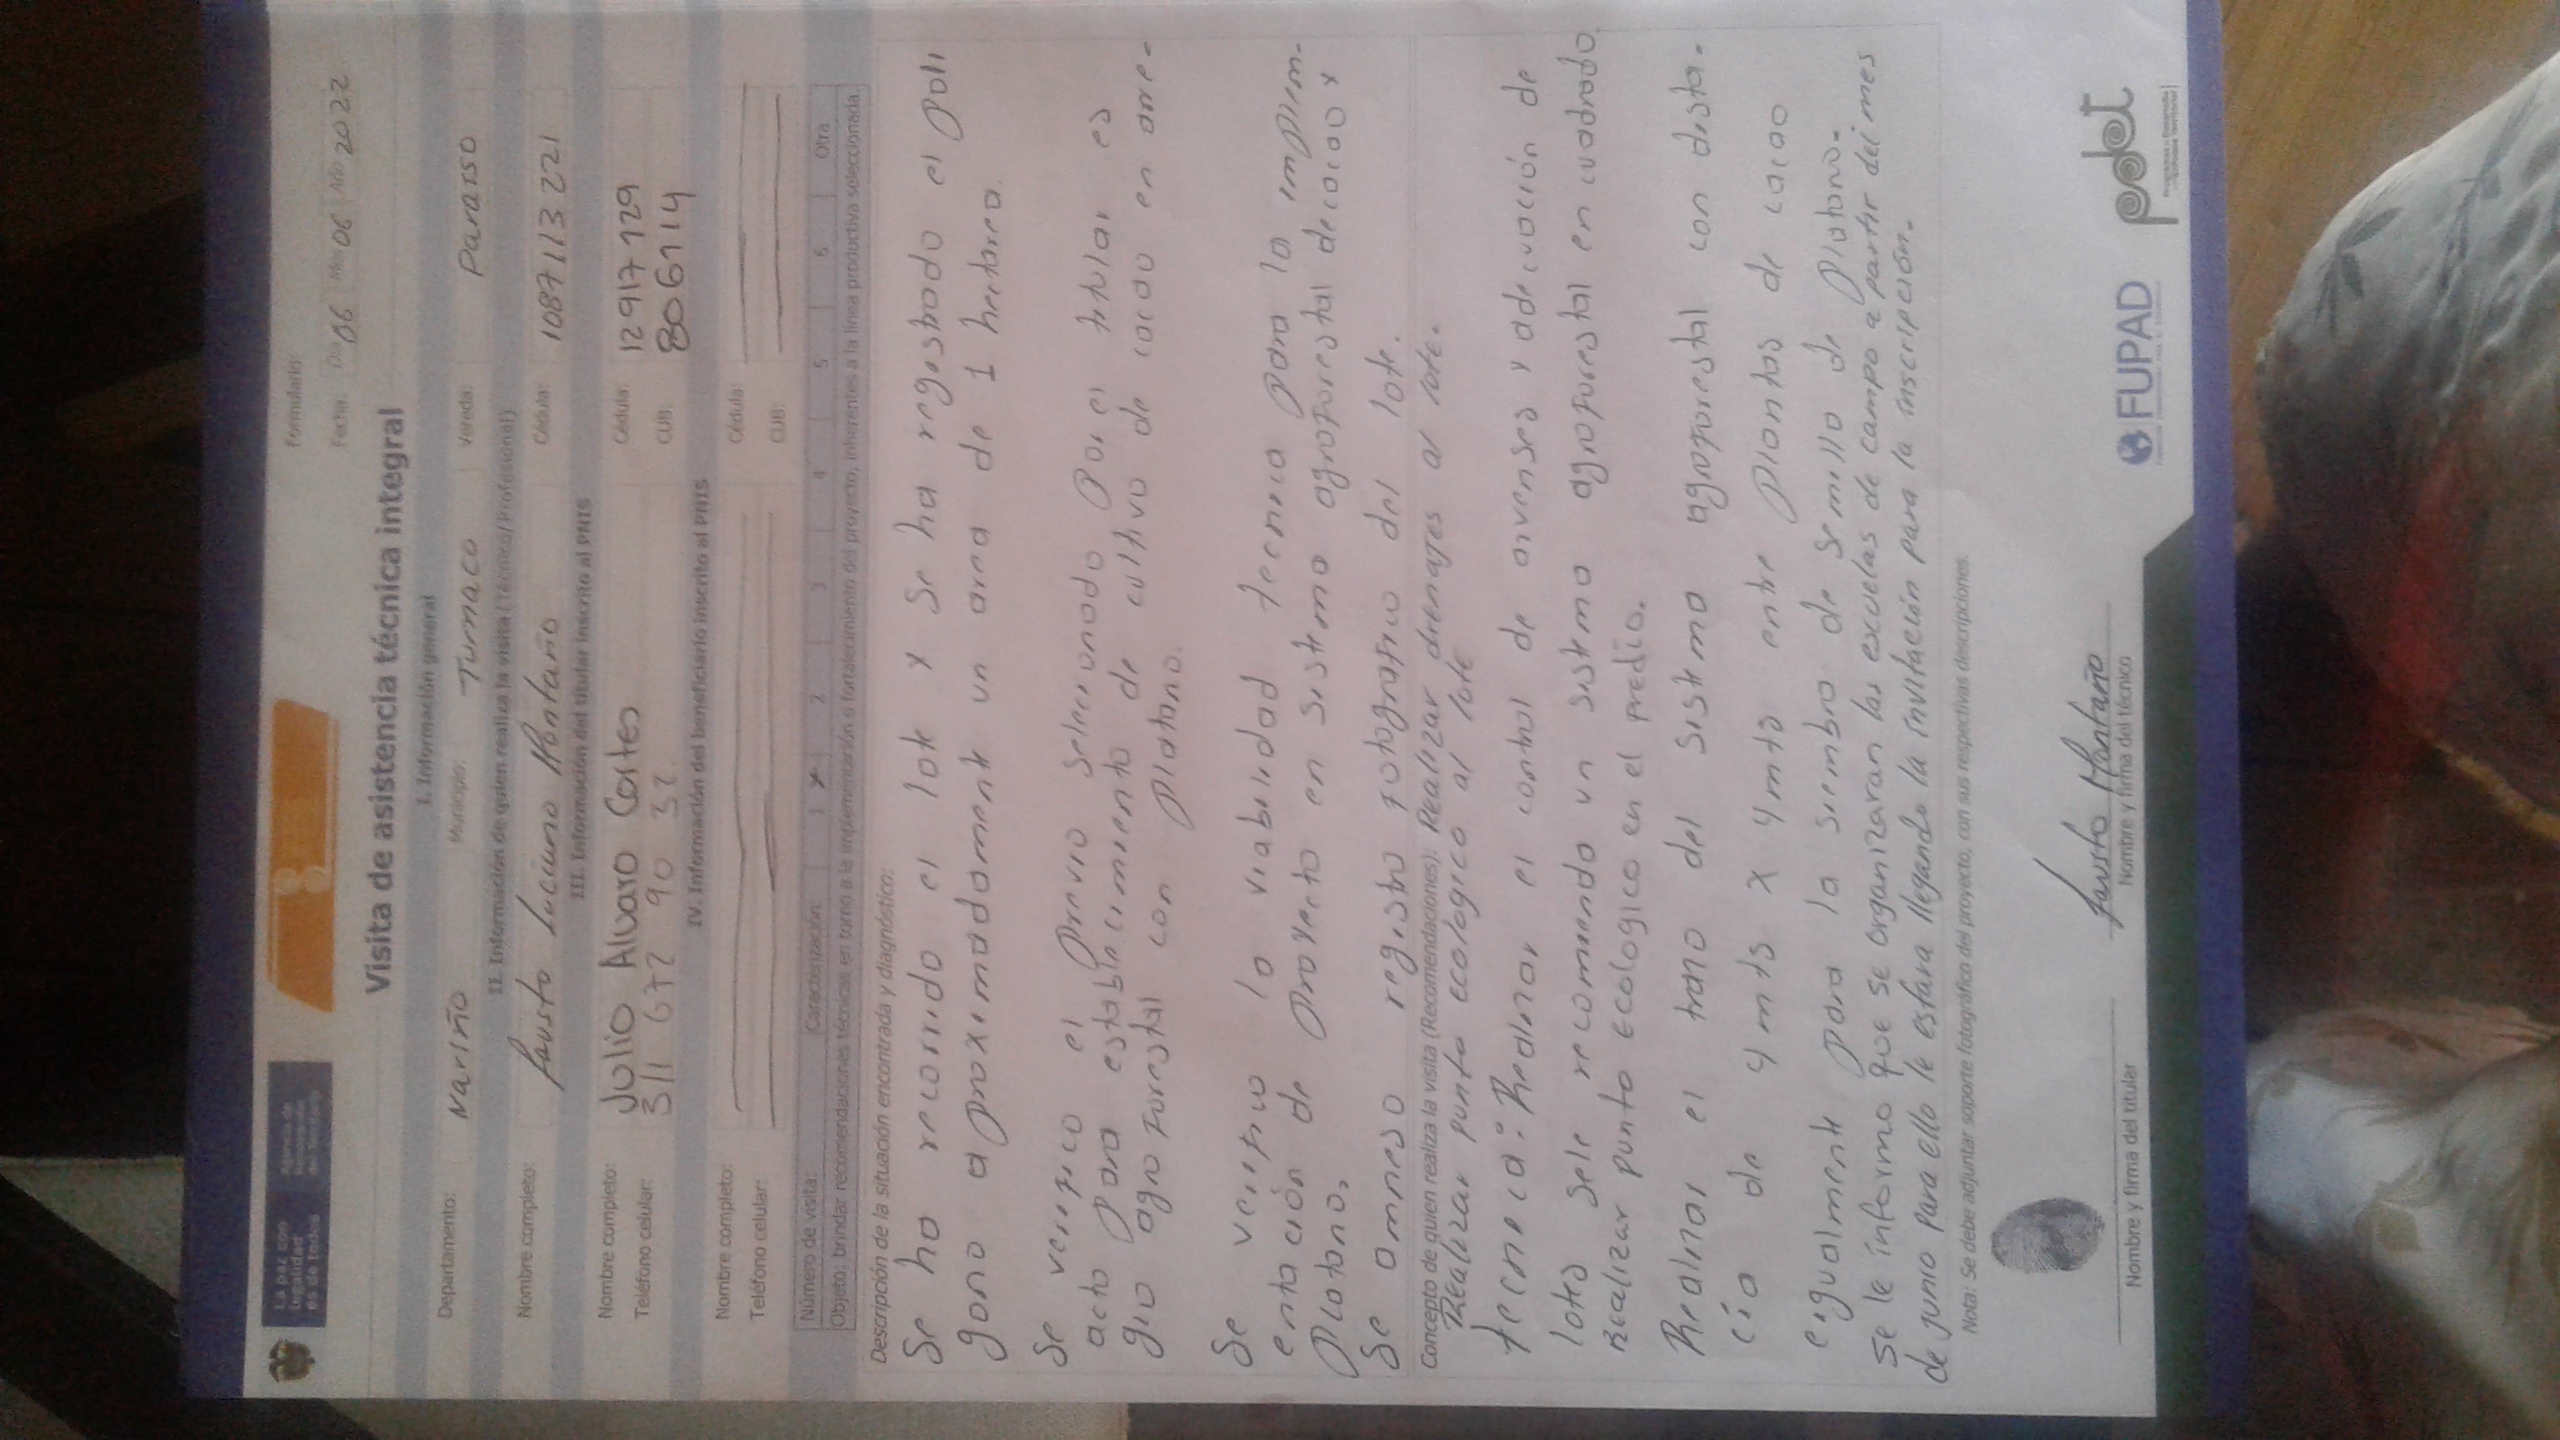 La paz con
legalidad
es de todos
Agencia de
Renovación
del Territorio
Formulario:
Fecha: Día 06 Mes 06 Año 2022
Visita de asistencia técnica integral
I. Información general
Departamento: Nariño Municipio: Tumaco Vereda: Paraiso
II. Información de quien realiza la visita (Técnico/Profesional)
Nombre completo: Fausto Luciano Montaño Cédula: 1087113221
III. Información del titular inscrito al PNIS
Nombre completo: Julio Alvaro Cortes Cédula: 12917729
Teléfono celular: 311 672 90 32 CUB: 806114
IV. Información del beneficiario inscrito al PNIS
Nombre completo: Cédula:
Teléfono celular: CUB:
Número de visita: Caracterización: 1 X 2 3 4 5 6 Otra
Objeto: brindar recomendaciones técnicas en torno a la implementación o fortalecimiento del proyecto, inherentes a la línea productiva seleccionada.
Descripción de la situación encontrada y diagnóstico:
Se ha recorrido el lote y se ha registrado el poli
gono aproximadamente un area de 1 hectarea.
Se verifico el previo seleccionado por el titular es
acto para establecimiento de cultivo de cacao en arre-
glo agroforestal con platano.
Se verifico la viabilidad tecnica para la implem-
entación de proyecto en sistema agroforestal de cacao y
platano.
Se anneso registro fotografico del lote.
Concepto de quien realiza la visita (Recomendaciones): Realizar drenajes al lote.
Realizar punto ecologico al lote
tecnica: Realizar el control de arvenses y adecuación de
lotes sele recomienda un sistema agroforestal en cuadrado.
Realizar punto Ecologico en el predio.
Realizar el trazo del sistema agroforestal con dista-
cia de 4 mts x 4 mts entre plantas de cacao
eigualmente para la siembra de semilla de platano.
Se le informo que se organizaran las escuelas de campo a partir del mes
de junio para ello le estara llegando la invitación para la inscripción.
Nota: Se debe adjuntar soporte fotográfico del proyecto, con sus respectivas descripciones.
Fausto Montaño
Nombre y firma del titular Nombre y firma del técnico
FUPAD
pdet
Programas de Desarrollo
con Enfoque Territorial